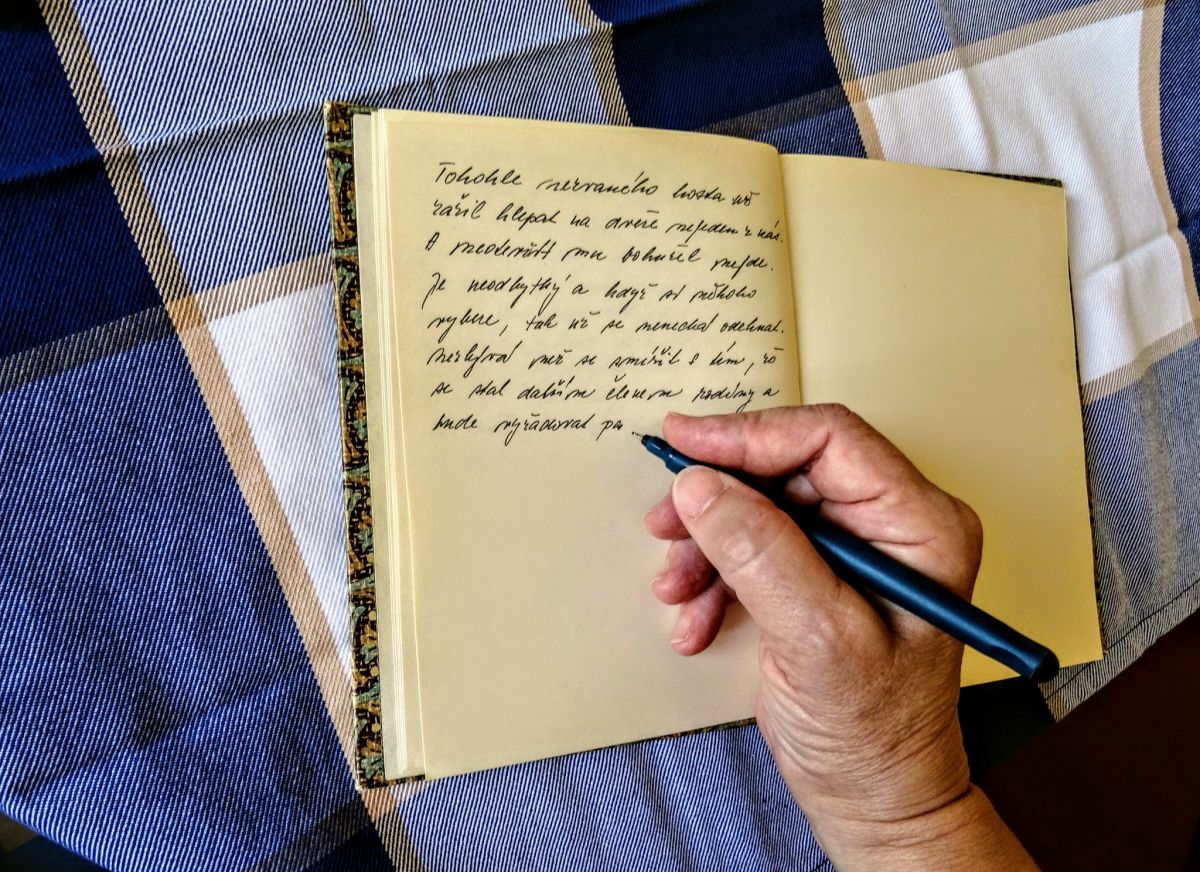 Tohohle nezvaného hosta už
zažil klepat na dveře nejeden z nás.
A neotevřít mu bohužel nejde.
Je neodbytný a když si někoho
vybere, tak už se nenechá odehnat.
Nezbývá než se smířit s tím, že
se stal dalším členem rodiny a
bude vyžadovat po